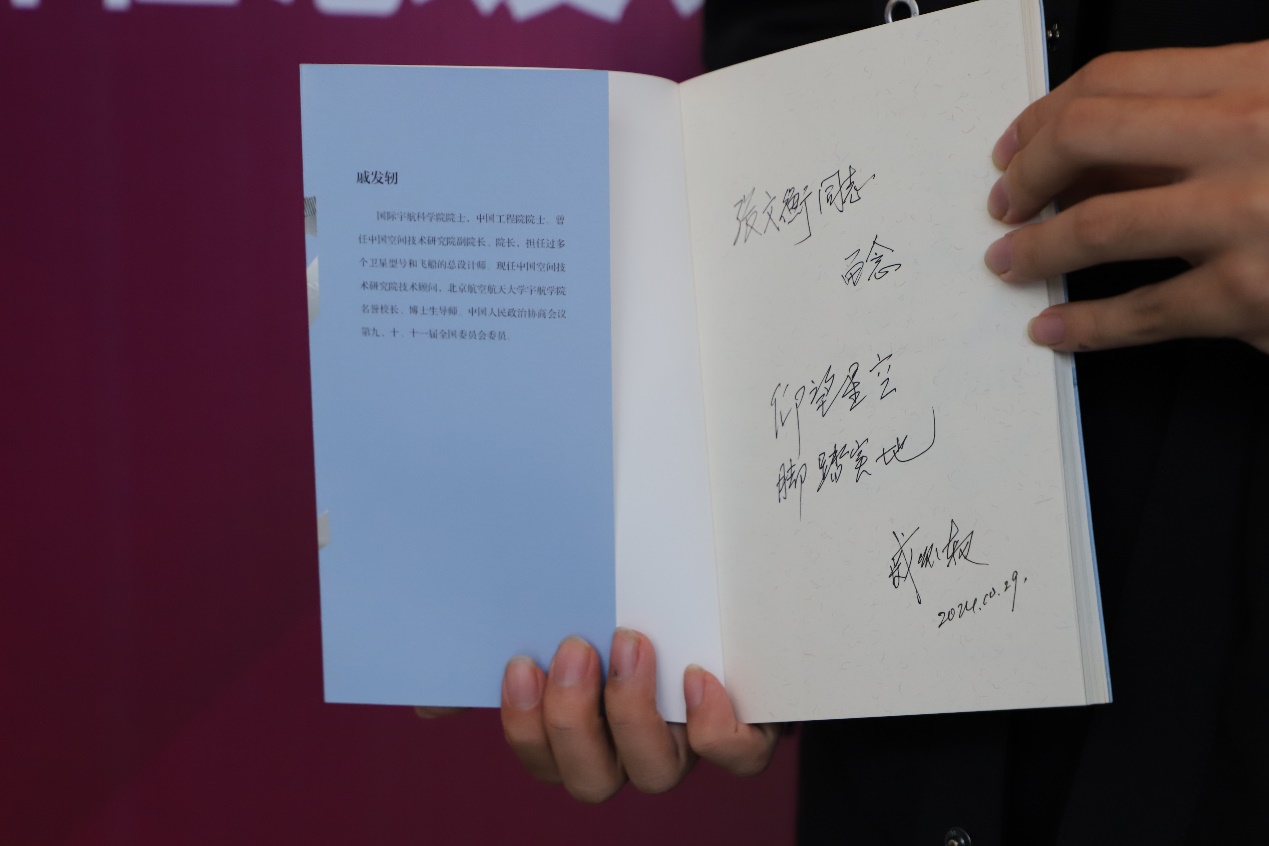 戚发轫
国际宇航科学院院士，中国工程院院士。曾
任中国空间技术研究院副院长、院长，担任过多
个卫星型号和飞船的总设计师。现任中国空间技
术研究院技术顾问，北京航空航天大学宇航学院
名誉校长、博士生导师。中国人民政治协商会议
第九、十、十一届全国委员会委员。
张文衡同志
留念
仰望星空
脚踏实地
戚发轫
2024.10.29.